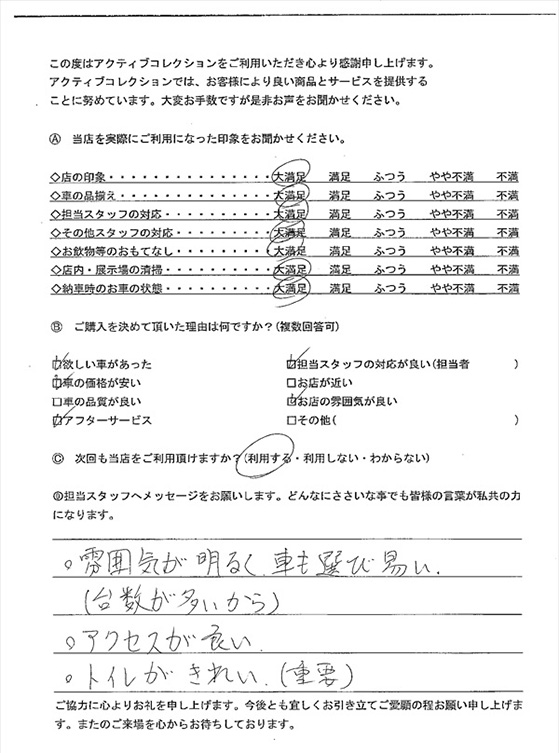 この度はアクティブコレクションをご利用いただき心より感謝申し上げます。
アクティブコレクションでは、お客様により良い商品とサービスを提供する
ことに努めています。大変お手数ですが是非お声をお聞かせください。
Ⓐ 当店を実際にご利用になった印象をお聞かせください。
◇店の印象・・・・・・・・・・・・・・・大満足 満足 ふつう やや不満 不満
◇車の品揃え・・・・・・・・・・・・・・大満足 満足 ふつう やや不満 不満
◇担当スタッフの対応・・・・・・・・・・大満足 満足 ふつう やや不満 不満
◇その他スタッフの対応・・・・・・・・・大満足 満足 ふつう やや不満 不満
◇お飲物等のおもてなし・・・・・・・・・大満足 満足 ふつう やや不満 不満
◇店内・展示場の清掃・・・・・・・・・・大満足 満足 ふつう やや不満 不満
◇納車時のお車の状態・・・・・・・・・・大満足 満足 ふつう やや不満 不満
Ⓑ ご購入を決めて頂いた理由は何ですか？(複数回答可)
☑欲しい車があった ☑担当スタッフの対応が良い(担当者 )
☑車の価格が安い □お店が近い
□車の品質が良い ☑お店の雰囲気が良い
☑アフターサービス □その他( )
Ⓒ 次回も当店をご利用頂けますか？(利用する・利用しない・わからない)
Ⓓ担当スタッフへメッセージをお願いします。どんなにささいな事でも皆様の言葉が私共の力
になります。
○雰囲気が明るく、車も選び易い。
(台数が多いから)
○アクセスが良い。
○トイレがきれい。(重要)
ご協力に心よりお礼を申し上げます。今後とも宜しくお引き立てご愛顧の程お願い申し上げま
す。またのご来場を心からお待ちしております。